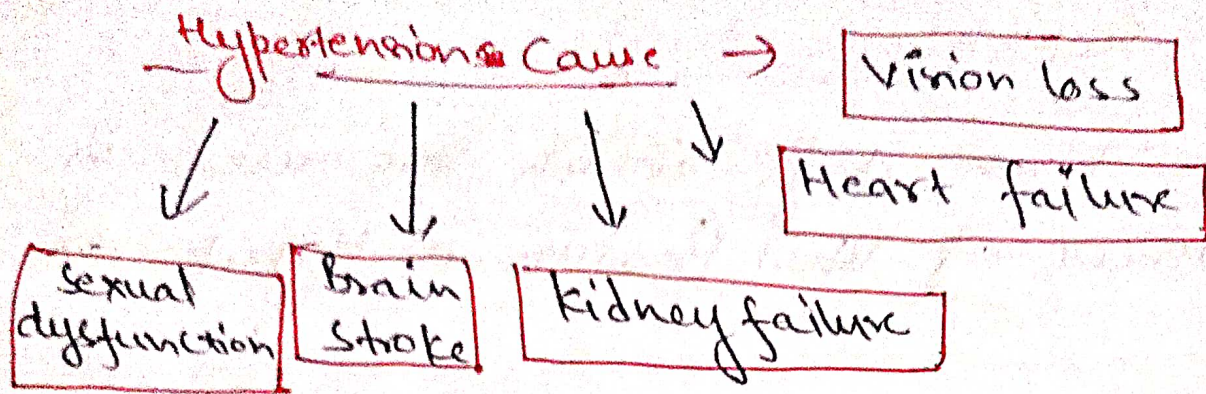 Hypertension Cause →
Vision loss
Heart failure
sexual
dysfunction
Brain
stroke
kidney failure